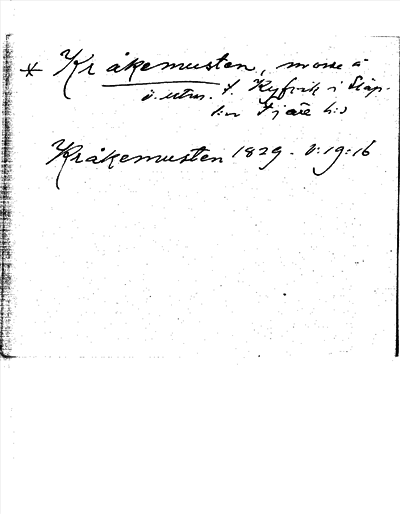 * Kråkemusten, mosse å
ö. utm. t. Kyfvik i Släp.
sn Fjäre hd
Kråkemusten 1829. V:19:16